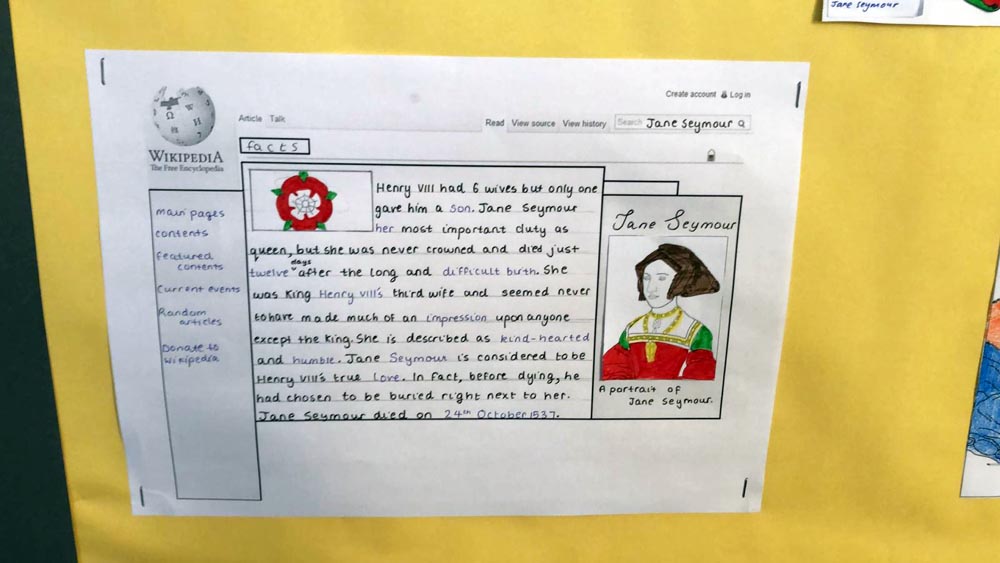 Jane Seymour
Create account Log in
Article Talk
Read View source View history Search Jane Seymour
WIKIPEDIA
The Free Encyclopedia
facts
main pages
contents
featured
contents
Current events
Random
articles
Donate to
Wikipedia
Henry VIII had 6 wives but only one
gave him a son. Jane Seymour
her most important duty as
queen, but she was never crowned and died just
twelve days after the long and difficult birth. She
was King Henry VIII's third wife and seemed never
to have made much of an impression upon anyone
except the king. She is described as kind-hearted
and humble. Jane Seymour is considered to be
Henry VIII's true love. In fact, before dying, he
had chosen to be buried right next to her.
Jane Seymour died on 24th October 1537.
Jane Seymour
A portrait of
Jane Seymour.